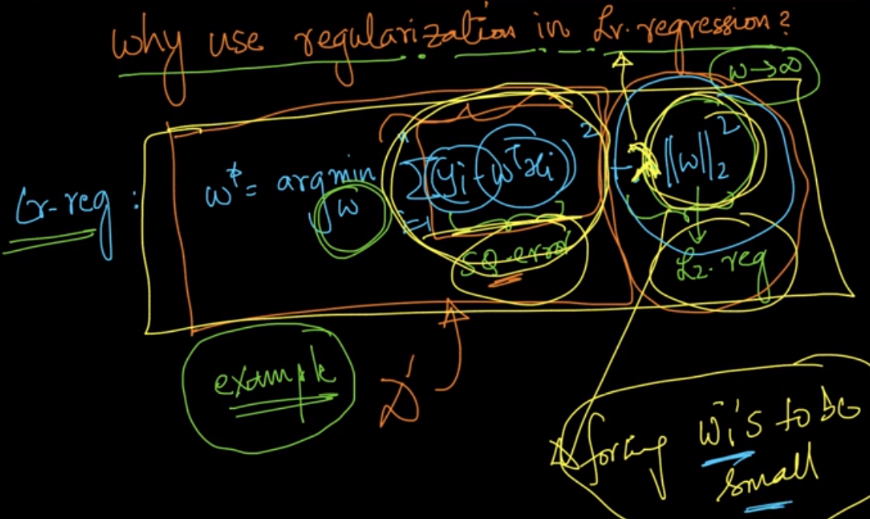 why use regularization in Lr. regression?
w → ∞
Lr-reg : w* = argmin Σ (yi - wᵀxi)² + λ ||w||₂²
w i=1 n
sq-error L2. reg
example D'
forcing wi's to be
small